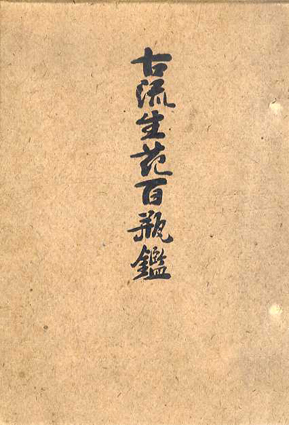 古流生花百瓶鑑